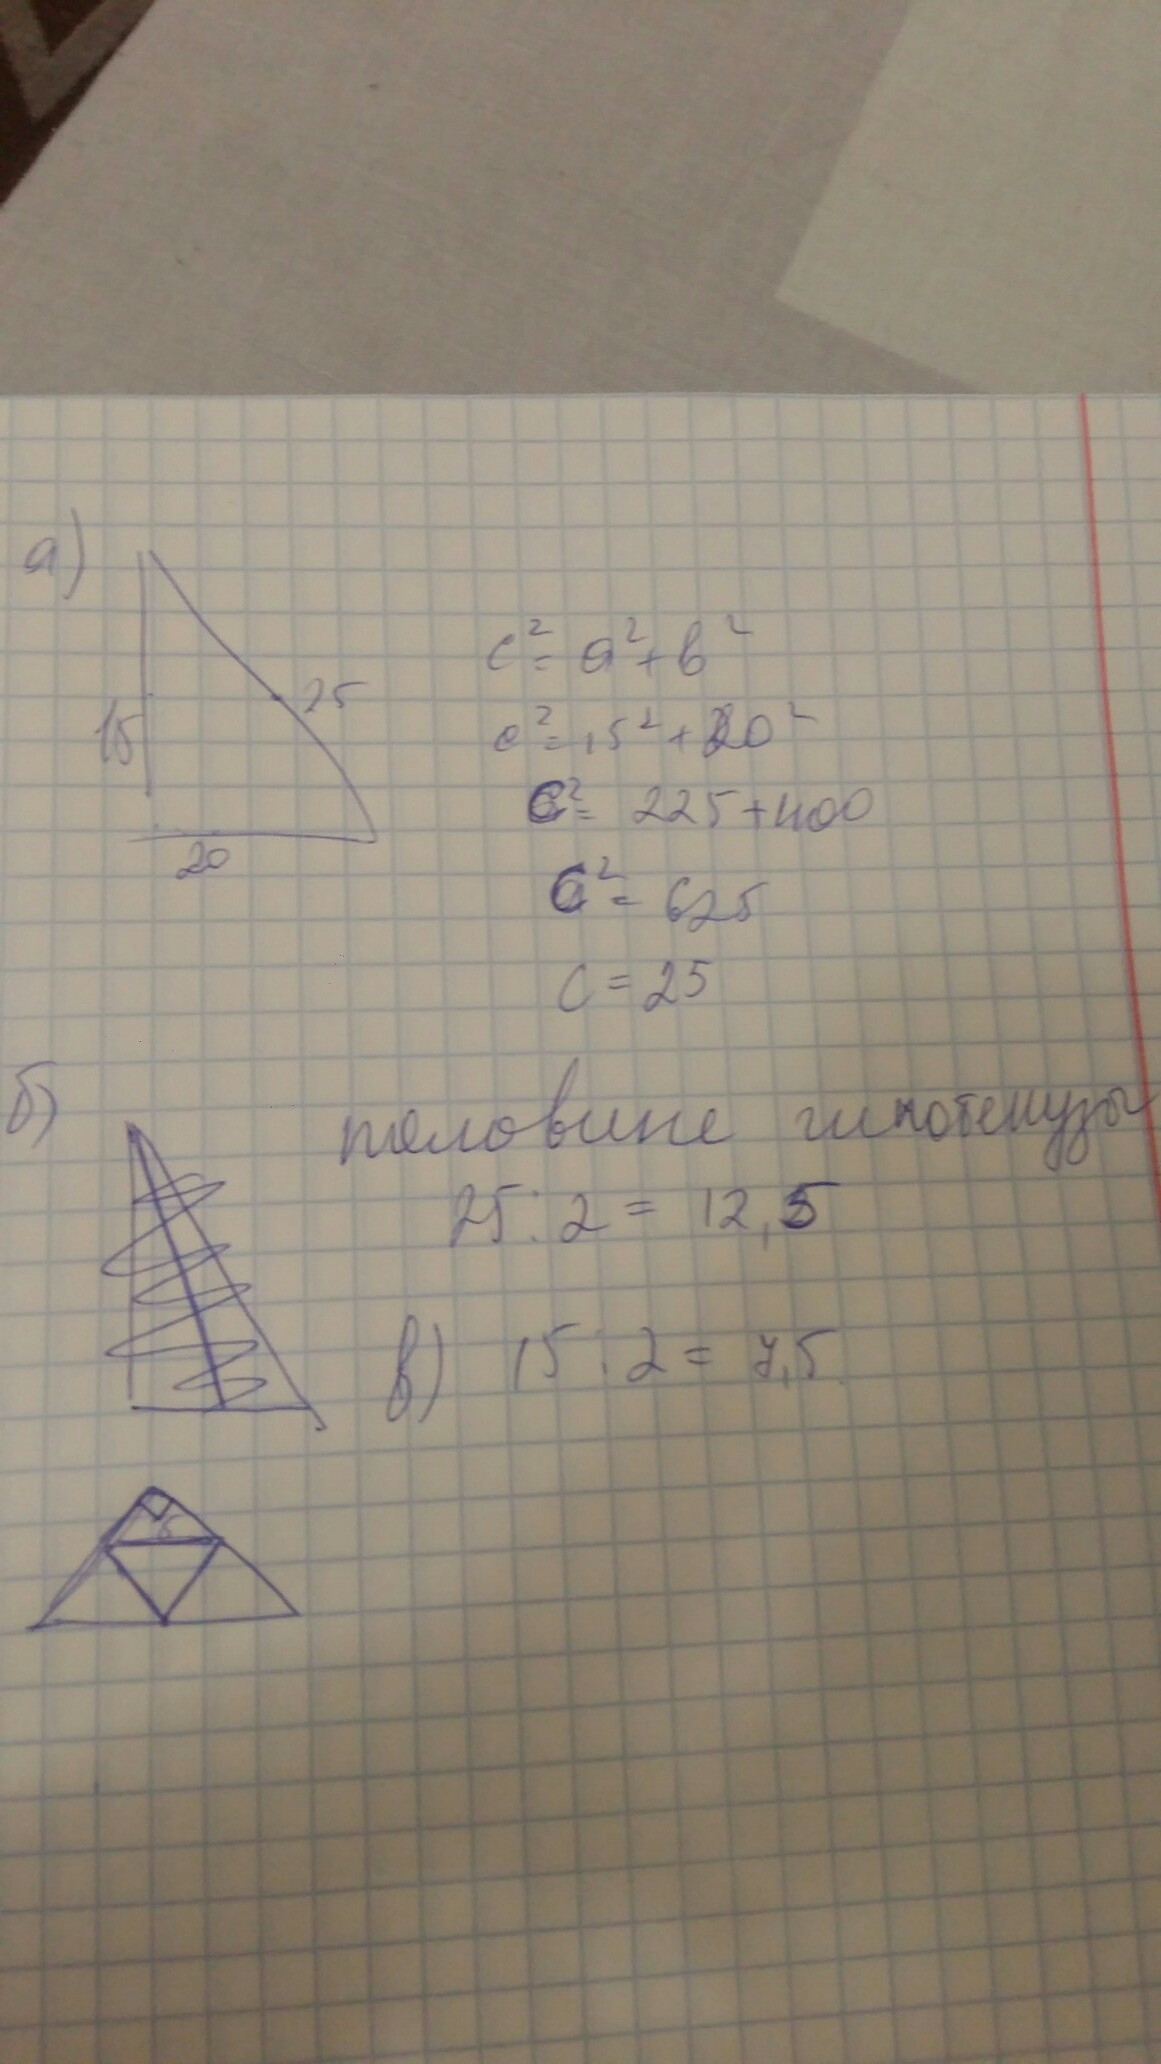 а)
15
25
20
c² = a² + b²
c² = 15² + 20²
c² = 225 + 400
c² = 625
c = 25
б)
половине гипотенузы
25 : 2 = 12,5
в) 15 : 2 = 7,5